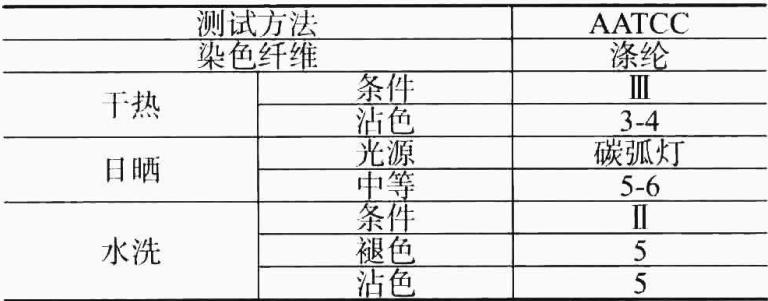 测试方法 AATCC
染色纤维 涤纶
干热 条件 Ⅲ
沾色 3-4
日晒 光源 碳弧灯
中等 5-6
水洗 条件 Ⅱ
褪色 5
沾色 5